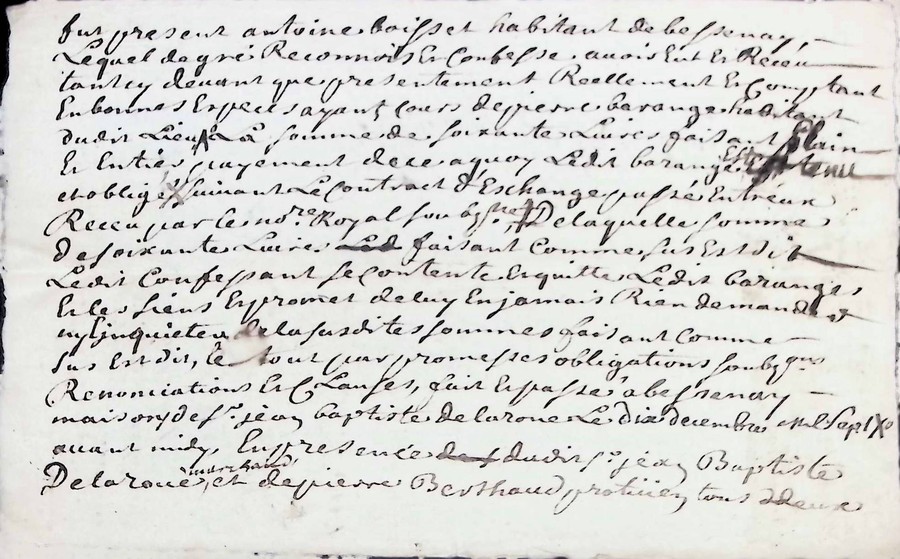 fut present antoine boisset habitant de bessenay
Lequel de gré Reconnois Et Confesse avois Eut Et Receu
tant cy devant que presentement Reellement Et Comptant
En bonnes Especes ayant Cours de pierre barange habitant
dudit Lieu La somme de soixante Livres faisant plain
Et Entier payement de ce aquoy Ledit barange Est tenu
et obligé suivant Le Contract d'Eschange passé Entreux
Receu par Ce no.re Royal soub.sne De laquelle somme
de soixante Livres Led faisant Comme sus Est dit
Ledit Confessant se Contente Et quitte Ledit baranges
Et les siens Et promet de luy En jamais Rien demander
ny Inquieter de la susdites sommes faisant Comme
sus Est dit, le tout par promesses obligations soub.ons
Renonciations Et Clauses, fait Et passé a bessenay
maison de s.r jean baptiste delaroue Le dix decembre Mil Sept
avant midy, En presence de s dudit s.r jean Baptiste
Delaroue, marchand et de pierre Berthaud tous deux